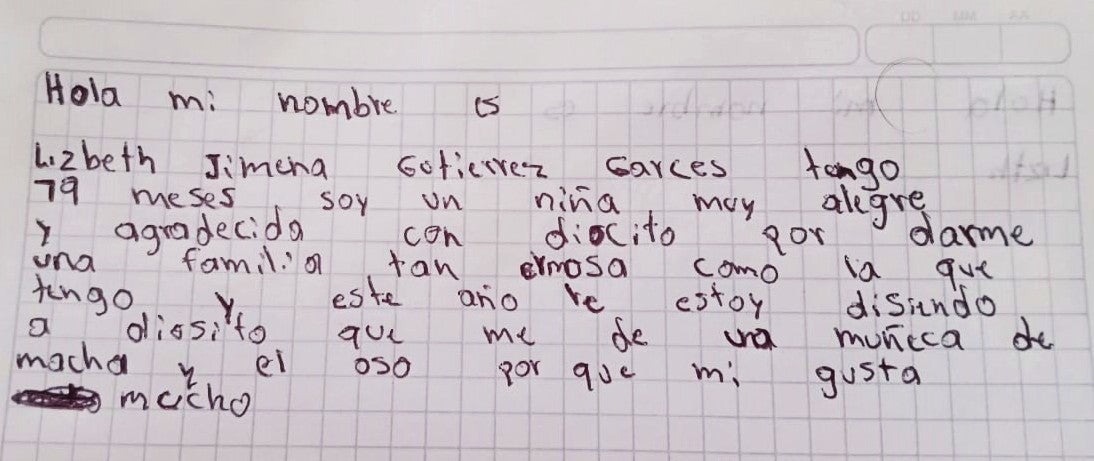 DD MM AA
Hola mi nombre es
Lizbeth Jimena Gotierrez Garces tengo
19 meses soy un niña muy alegre
y agradecida con diocito por darme
una familia tan ermosa como la que
tengo y este año le estoy disiendo
a diosito que me de una muñeca de
macha y el oso por que mi gusta
mucho